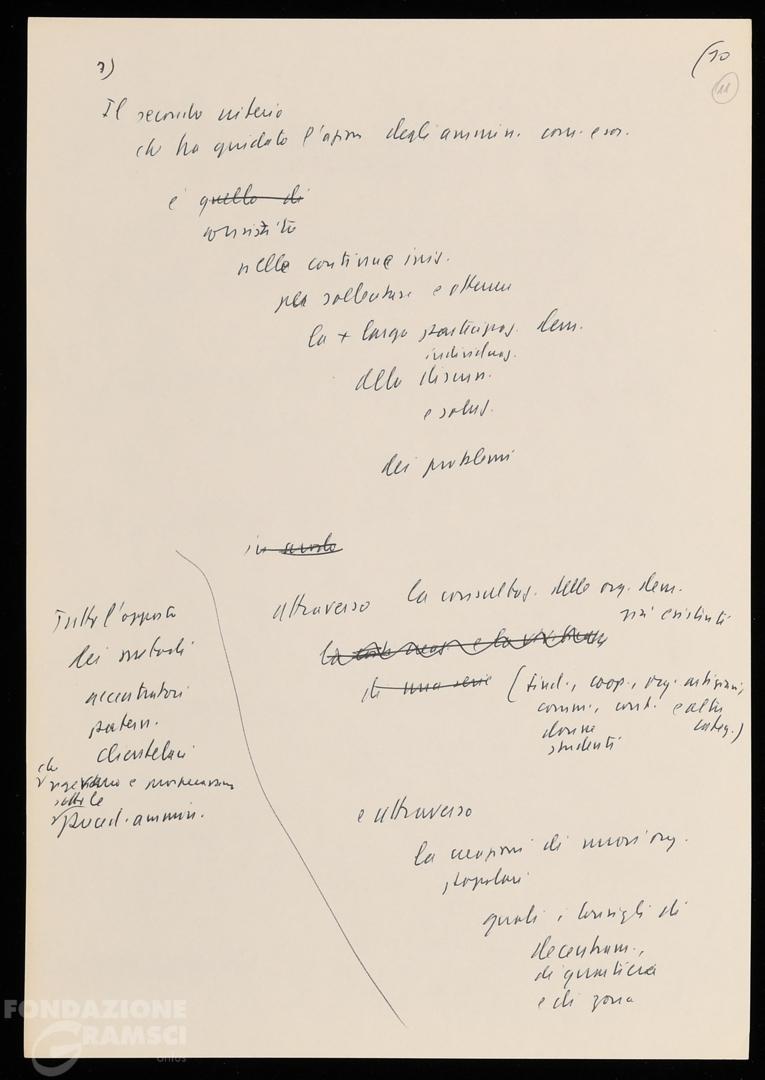 7)
(10
11
Il secondo criterio
che ha guidato l'azion degli ammin. com. e soc.
è quello di
consistito
nelle continue iniz.
per sollecitare e ottenere
la + larga partecipaz. dem.
individuaz.
alla discuss.
e soluz.
dei problemi
in
attraverso la consultaz. delle org. dem.
già esistenti
di una serie (sind., coop., org. artigiani,
comm., cont. e altre
donne categ.)
studenti
e attraverso
la creazioni di nuovi org.
popolari
quali i Consigli di
decentram.,
di quartiere
e di zona
Tutto l'opposto
dei metodi
accentratori
patern.
clientelari
che
vigevano e
sotto le
preced. ammin.
FONDAZIONE
GRAMSCI
onlus